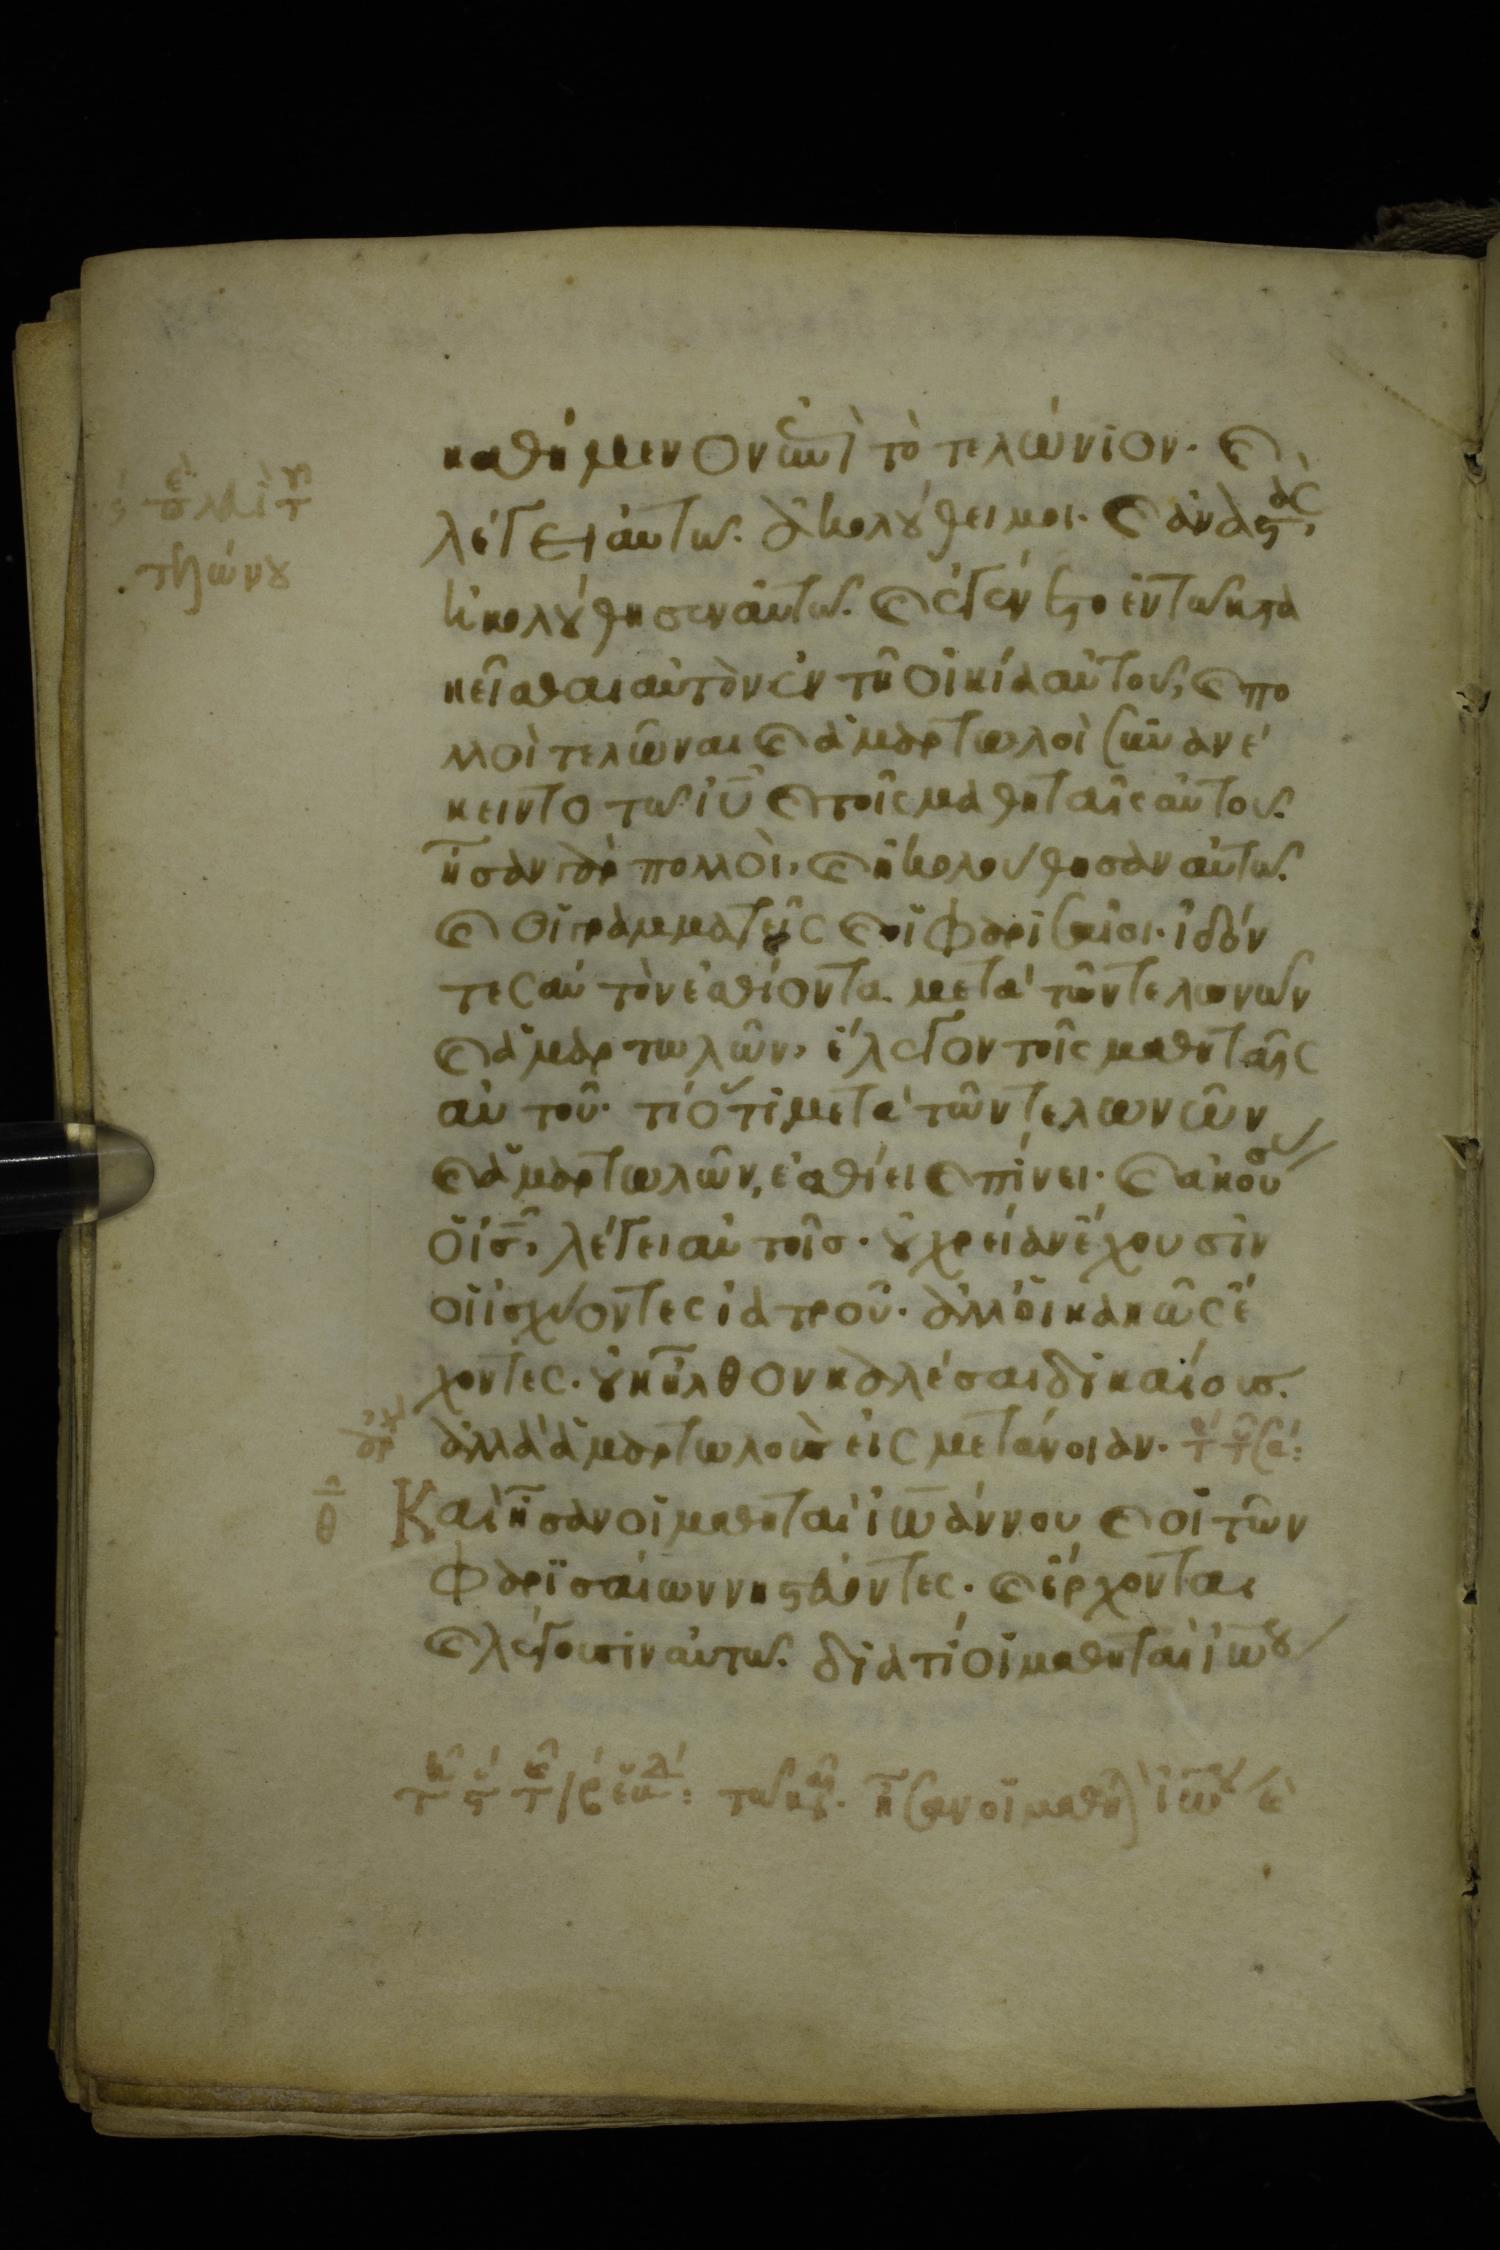 καθήμενον ἐπὶ τὸ τελώνιον· καὶ
λέγει αὐτῶ· ἀκολούθει μοι· καὶ ἀναστὰς,
ἠκολούθησεν αὐτῶ· καὶ ἐγένετο ἐν τῶ κατα
κεῖσθαι αὐτὸν ἐν τῆ οἰκία αὐτοῦ, καὶ πο
λλοὶ τελῶναι καὶ ἁμαρτωλοὶ συνανέ
κειντο τῶ ἰῦ καὶ τοῖς μαθηταῖς αὐτοῦ·
ἦσαν γὰρ πολλοὶ, καὶ ἠκολούθησαν αὐτῶ·
καὶ οἱ γραμματεῖς καὶ οἱ φαρισαῖοι· ἰδόν
τες αὐτὸν ἐσθίοντα μετὰ τῶν τελωνῶν
καὶ ἁμαρτωλῶν, ἔλεγον τοῖς μαθηταῖς
αὐτοῦ· τί ὅτι μετὰ τῶν τελωνῶν
καὶ ἁμαρτωλῶν, ἐσθίει καὶ πίνει· καὶ ἀκούσ
ὁ ἰς, λέγει αὐτοῖς· οὐ χρείαν ἔχουσιν
οἱ ἰσχύοντες ἰατροῦ· ἀλλ' οἱ κακῶς ἔ
χοντες· οὐκ ἦλθον καλέσαι δικαίους·
ἀλλὰ ἁμαρτωλοὺς εἰς μετάνοιαν·
θ Καὶ ἦσαν οἱ μαθηταὶ ἰωάννου καὶ οἱ τῶν
φαρισαίων νηστεύοντες· καὶ ἔρχονται
καὶ λέγουσιν αὐτῶ· διατί οἱ μαθηταὶ ἰωου
τῶ κ ἦσαν οἱ μαθη ἰωου